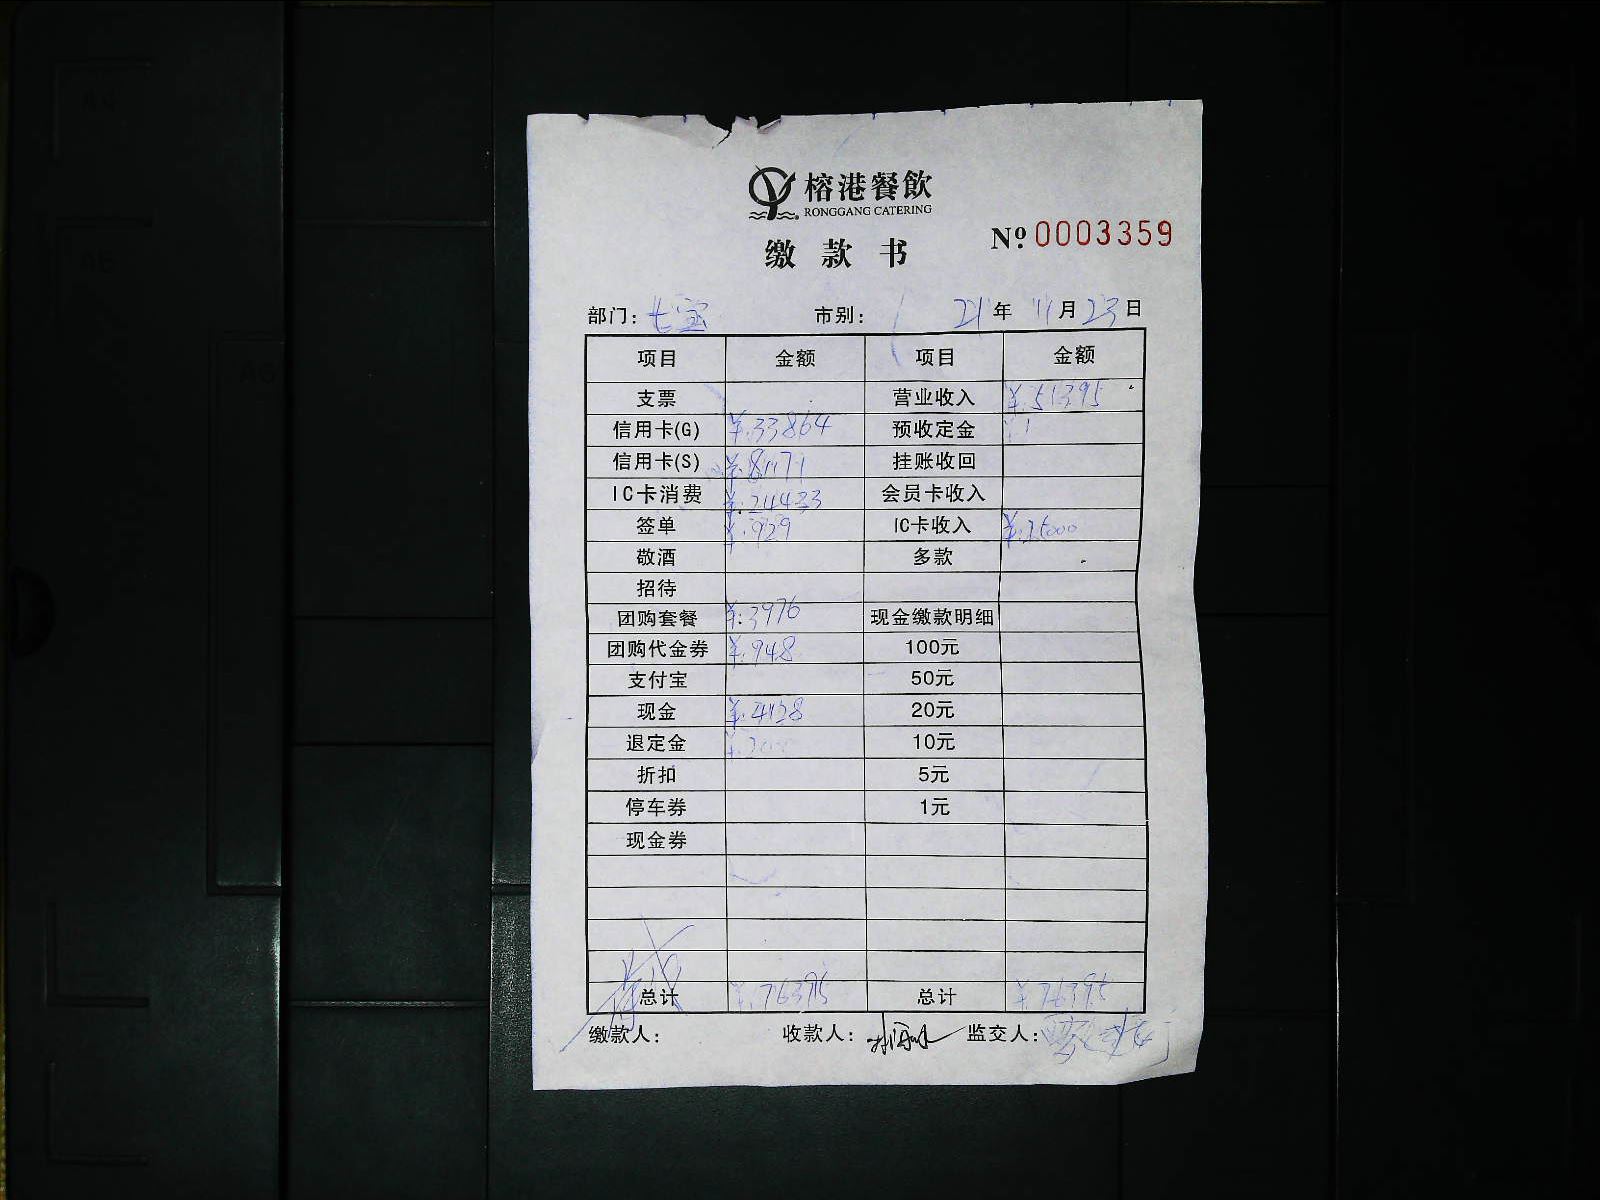 榕港餐飲
RONGGANG CATERING
缴款书 Nº 0003359
部门: 七宝 市别: 21年 11月 23日
项目 金额 项目 金额
支票 营业收入 ¥:51395
信用卡(G) ¥:33864 预收定金
信用卡(S) 挂账收回
IC卡消费 ¥:24433 会员卡收入
签单 ¥:929 IC卡收入 ¥:25000
敬酒 多款
招待
团购套餐 ¥:3976 现金缴款明细
团购代金券 ¥:948 100元
支付宝 50元
现金 ¥:4128 20元
退定金 10元
折扣 5元
停车券 1元
现金券
总计 ¥:76395 总计 ¥:76395
缴款人: 收款人: 监交人: